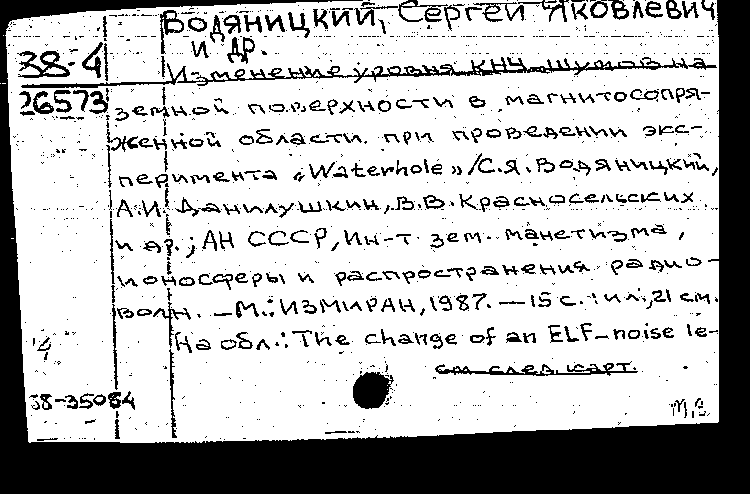 Водяницкий, Сергей Яковлевич
и др.
38-4
26573
Изменение уровня КНЧ шумов на
земной поверхности в магнитосопря-
женной области при проведении экс-
перимента "Waterhole"/С.Я. Водяницкий,
А.И. Данилушкин, В.В. Красносельских
и др.; АН СССР, Ин-т зем. манетизма,
ионосферы и распространения радио-
волн. – М.: ИЗМИРАН, 1987. – 15 с. : ил.; 21 см.
На обл.: The change of an ELF-noise le-
см. след. карт.
38-35084